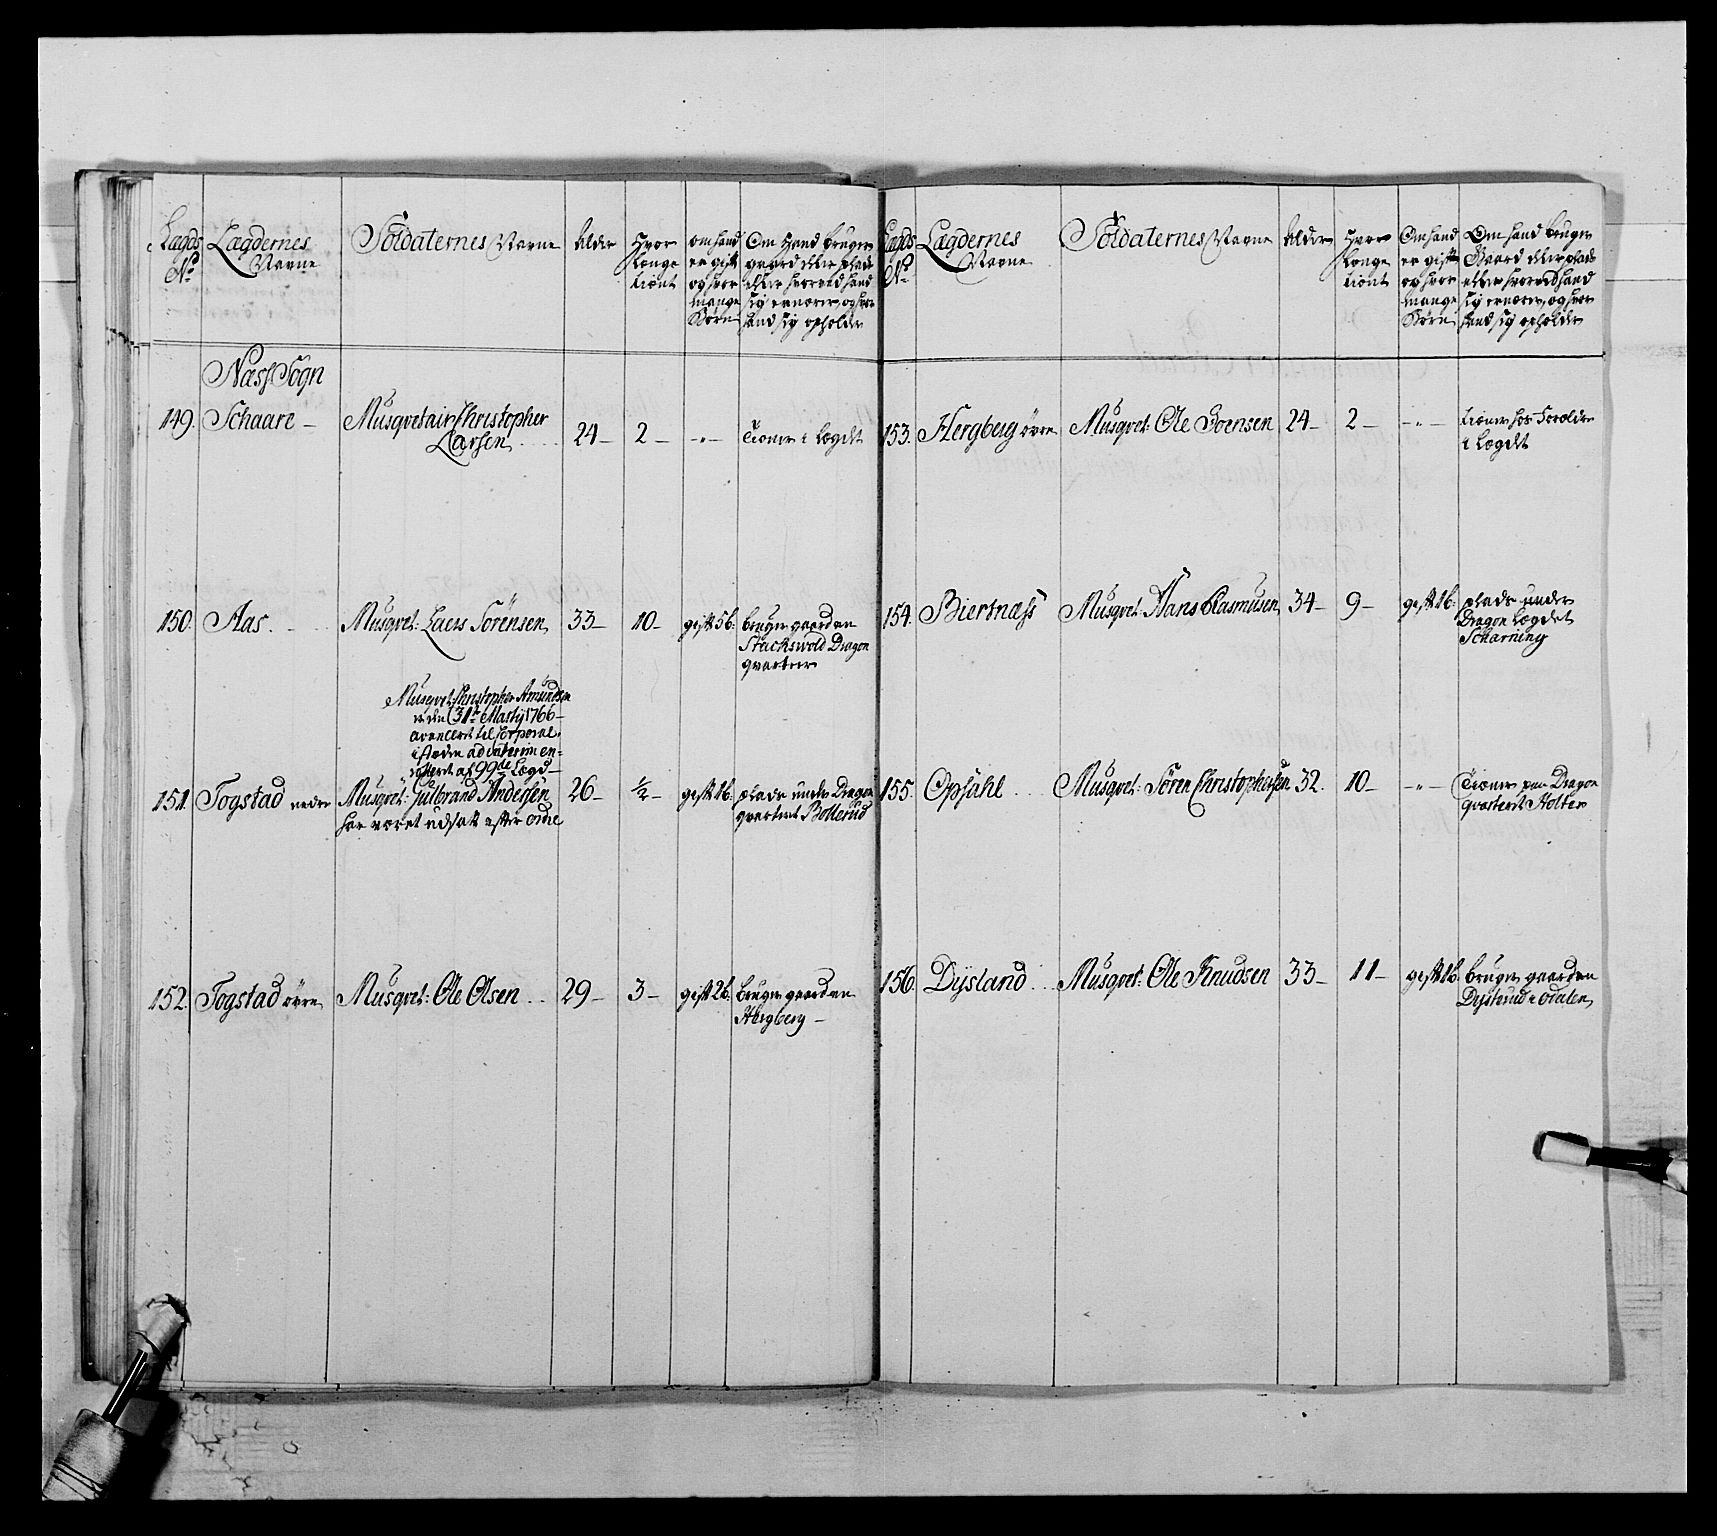 Lægds No
Lægdernes Navne
Soldaternes Navne
Alder
Hvor længe tient
om hand er gift og hvor mange Børn
Om Hand bruger gaard eller plads eller hvorved hand sig ernærer, og hvor hand sig opholder
Næss Sogn
149. Schaare – Musqvetair Christopher
Larsen 24 – 2 – -"- Tiener i Lægdet
150. Aas Musqvet: Laers Sörensen 33 – 10 – gift 5 b: bruger gaarden
Stuckswold Dragon
qvarteer
Musqvet: Christopher Amundsen
er den 31te Martÿ 1766 –
avancert til Corporal,
i stæden ad interim en-
rollerit af 99de Lægd –
151. Togstad neder Musqvet: Gulbrand Andersen 26 – ½ – gift 1 b: plads under Dragon
har været udsatt efter Ordre qvarteret Bollerud
152. Togstad øvre Musqvet: Ole Olsen 29 – 3 – gift 2 b: bruger gaarden
Hergberg –
Lægds No
Lægdernes Navne
Soldaternes Navne
Alder
Hvor længe tient
Om hand er gift og hvor mange Børn
Om hand bruger Gaard eller plads eller hvorved hand sig ernærer, og hvor hand sig opholder
153. Hergberg øvre Musqvet: Ole Joensen 24 – 2 – -"- tiener hos Forældre
i Lægdet
154. Biertnæss Musqvet: Hans Rasmusen 34 – 9 – gift 1 b: plads under
Dragon Lægdet
Scharning
155. Opsahl Musqvet: Sören Christophersen 32. 10 – -"- Tiener paa Dragon
qvarteret Holter
156. Dÿsland Musqvet: Ole Knudsen 33 – 11 – gift 1 b: bruger gaarden
Dÿstrud i Odalen